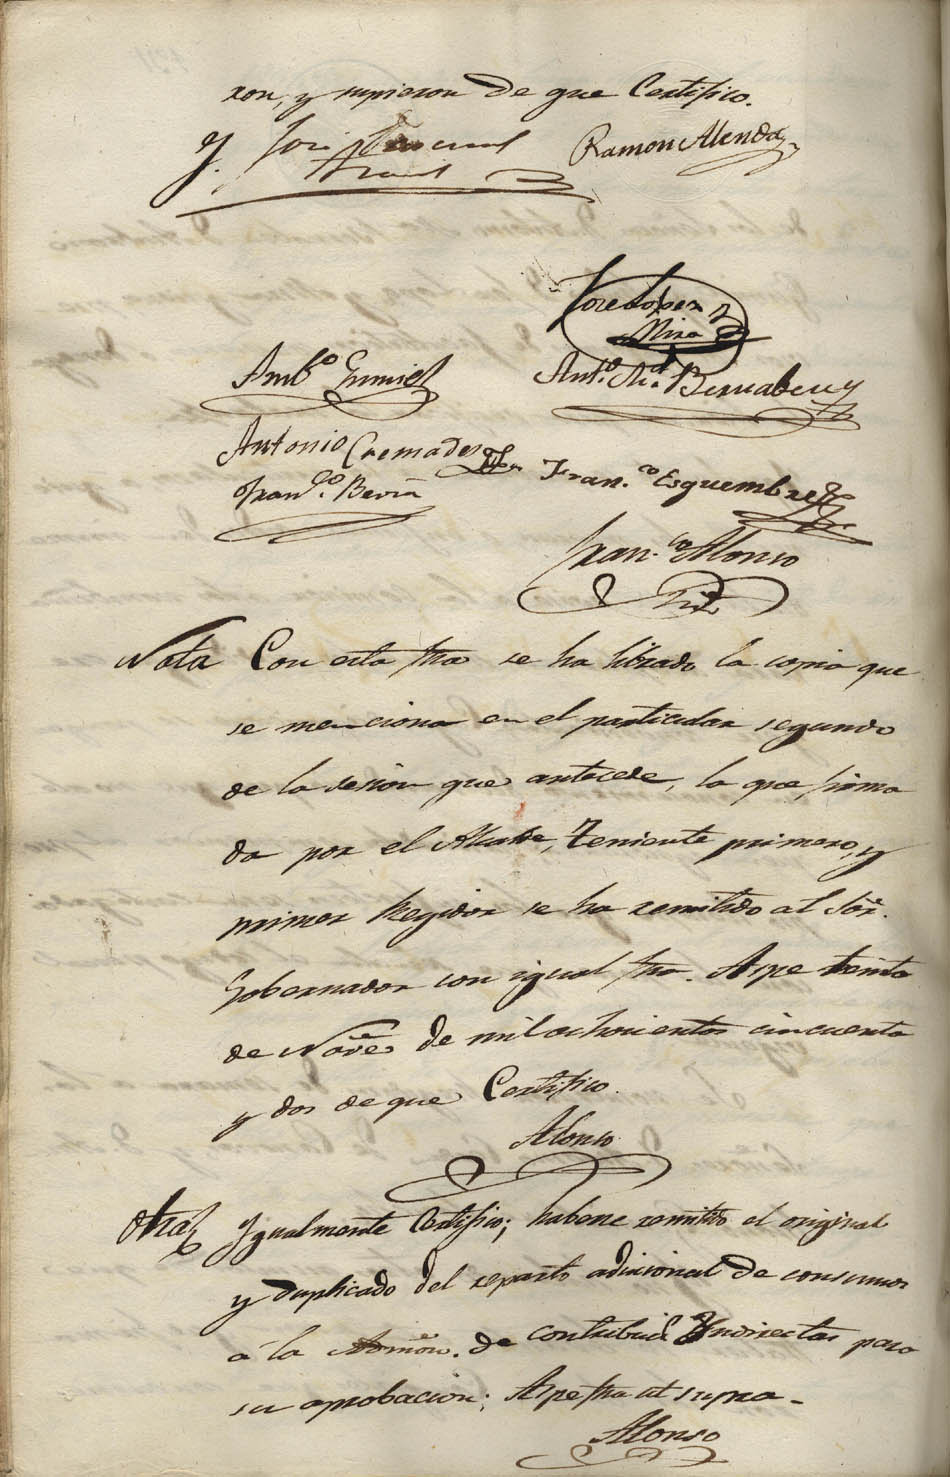 ron, y supieron de que Certifico.
Ramon Alenda
Jose Lopez
Mira
Ambº
Antº Mª Bernabeu
Antonio Cremades
Franº Esquembre
Francº
Franco Alonso
Nota Con esta fha se ha librado la copia que
se menciona en el particular segundo
de la sesion que antecede, la que firma
da por el Alcalde, Teniente primero, y
primer Regidor se ha remitido al Sōr.
Gobernador con igual fha. Aspe treinta
de Novē de mil ochocientos cincuenta
y dos de que Certifico.
Alonso
Otra Ygualmente Certifico; haberse remitido el original
y duplicado del reparto adicional de consumos
á la Admōn. de contribuc Yndirectas para
su aprobacion; Aspe fha ut supra -
Alonso